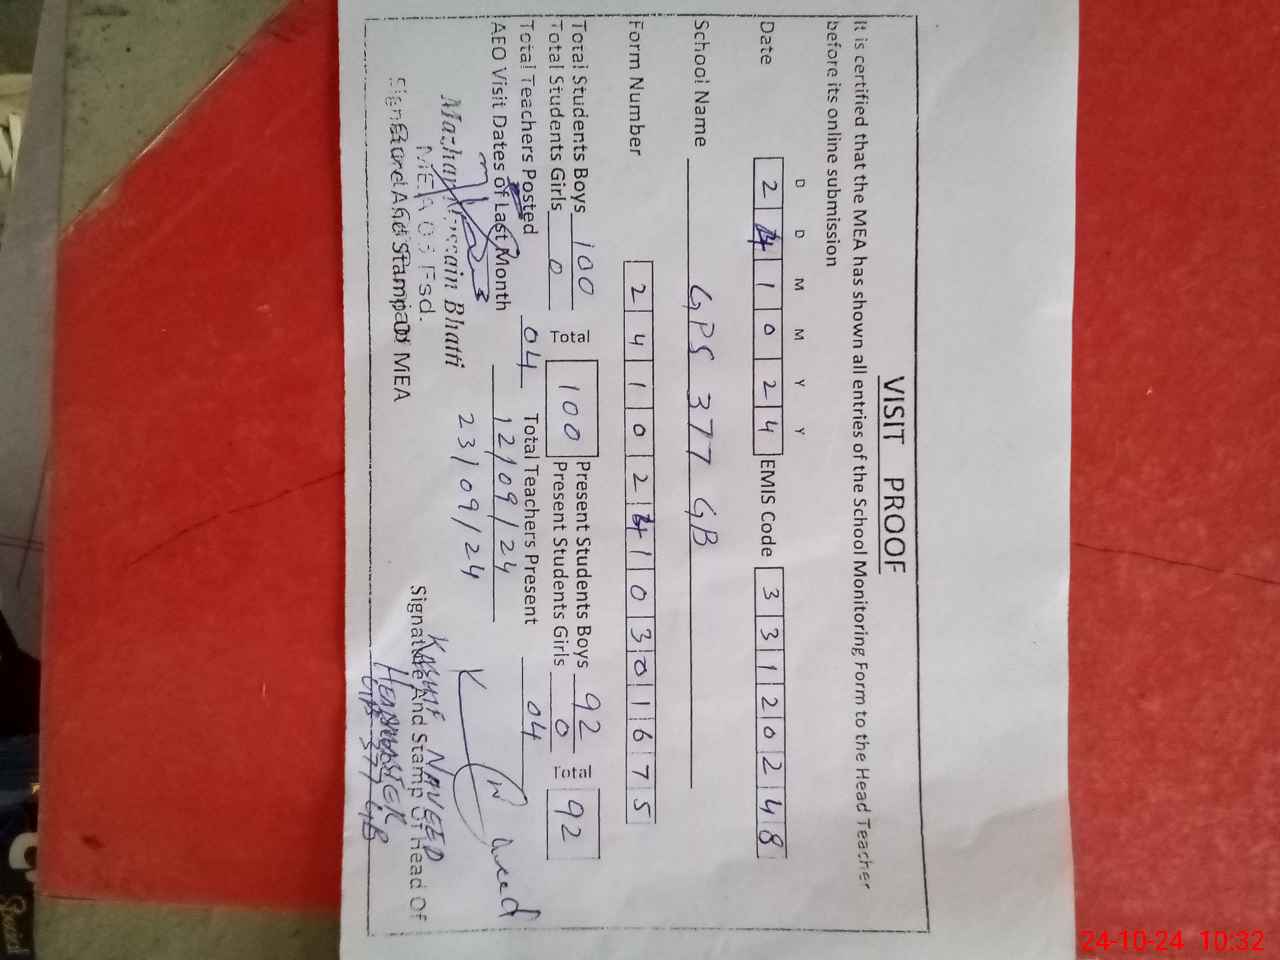 VISIT PROOF
It is certified that the MEA has shown all entries of the School Monitoring Form to the Head Teacher
before its online submission
D D M M Y Y
Date 2 4 1 0 2 4 EMIS Code 3 3 1 2 0 2 4 8
School Name GPS 377 GB
Form Number 2 4 1 0 2 4 1 0 3 0 1 6 7 5
Total Students Boys 100 Total 100 Present Students Boys 92 Total 92
Total Students Girls 0 Present Students Girls 0
Total Teachers Posted 04 Total Teachers Present 04
AEO Visit Dates of Last Month 12/09/24
23/09/24
Mazhar Hussain Bhatti
MEA 03 Fsd.
Signature And Stamp Of MEA
Signature And Stamp Of Head Of
KASHIF NAVEED
HEADMASTER
GPS 377 GB
Special
24-10-24 10:32